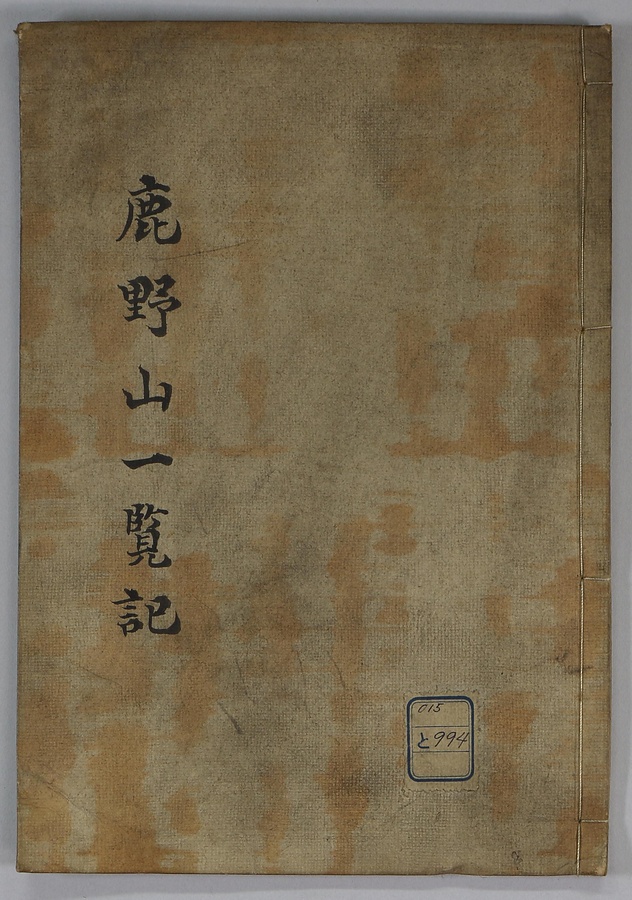 鹿野山一覧記
015
と994